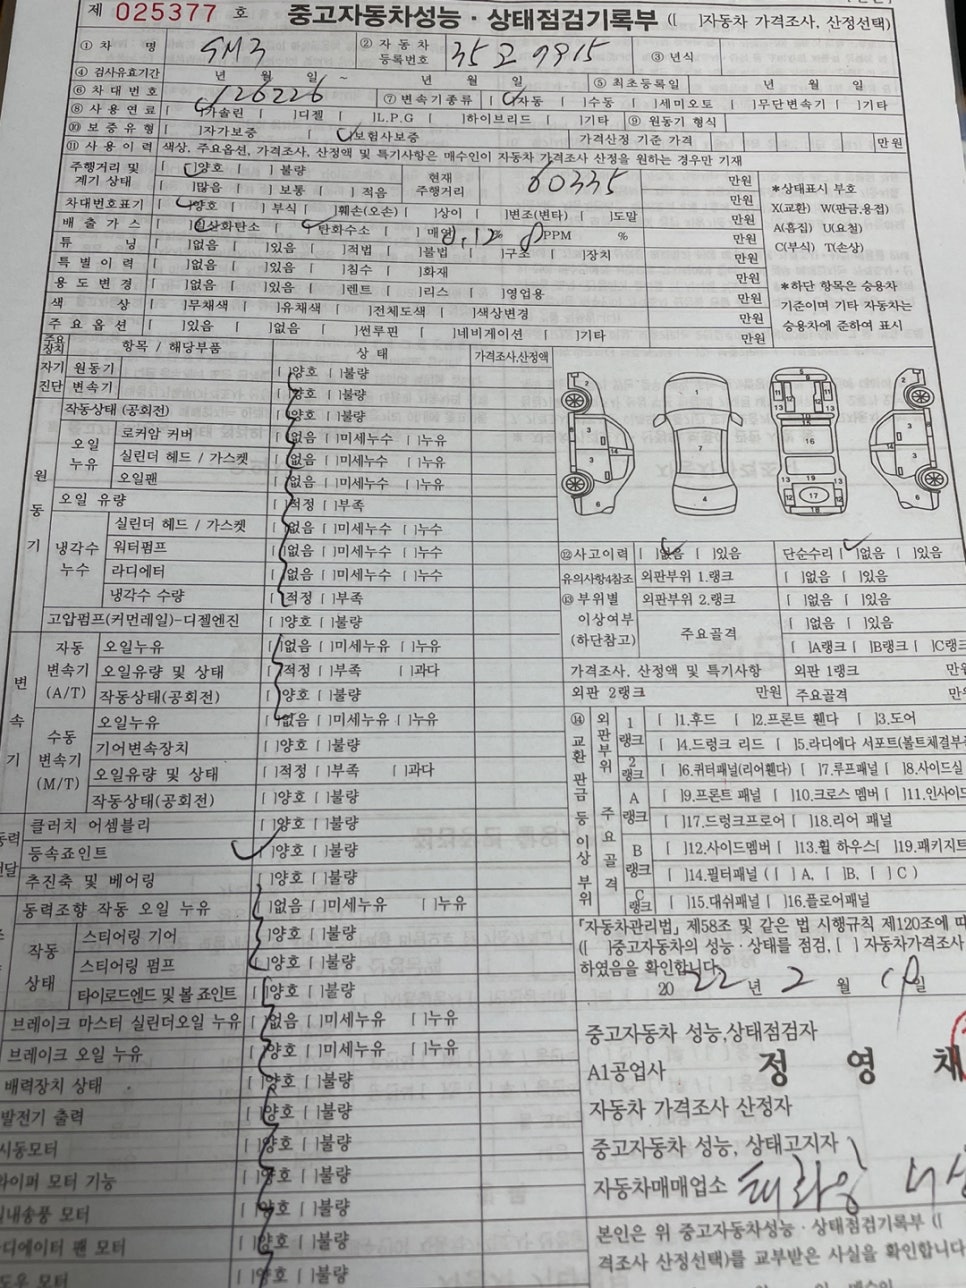 제 025377 호 중고자동차성능 · 상태점검기록부 ([ ]자동차 가격조사, 산정선택)
① 차 명 SM3 ② 자동차 등록번호 ③ 년식
④ 검사유효기간 년 월 일 ~ 년 월 일 ⑤ 최초등록일 년 월 일
⑥ 차대번호 126226 ⑦ 변속기종류 [ ]자동 [ ]수동 [ ]세미오토 [ ]무단변속기 [ ]기타
⑧ 사용연료 [ ]가솔린 [ ]디젤 [ ]L.P.G [ ]하이브리드 [ ]기타 ⑨ 원동기 형식
⑩ 보증유형 [ ]자가보증 [ ]보험사보증 가격산정 기준 가격 만원
⑪ 사용이력 색상, 주요옵션, 가격조사, 산정액 및 특기사항은 매수인이 자동차 가격조사 산정을 원하는 경우만 기재
주행거리 및 계기 상태 [ ]양호 [ ]불량 현재 주행거리 60335 만원
[ ]많음 [ ]보통 [ ]적음 만원
차대번호표기 [ ]양호 [ ]부식 [ ]훼손(오손) [ ]상이 [ ]변조(변타) [ ]도말 만원
배출가스 [ ]일산화탄소 [ ]탄화수소 [ ]매연 0.12% 8PPM % 만원
튜닝 [ ]없음 [ ]있음 [ ]적법 [ ]불법 [ ]구조 [ ]장치 만원
특별이력 [ ]없음 [ ]있음 [ ]침수 [ ]화재 만원
용도변경 [ ]없음 [ ]있음 [ ]렌트 [ ]리스 [ ]영업용 만원
색상 [ ]무채색 [ ]유채색 [ ]전체도색 [ ]색상변경 만원
주요옵션 [ ]있음 [ ]없음 [ ]썬루핀 [ ]네비게이션 [ ]기타 만원
*상태표시 부호
X(교환) W(판금,용접)
A(흠집) U(요철)
C(부식) T(손상)
*하단 항목은 승용차
기준이며 기타 자동차는
승용차에 준하여 표시
주요장치 항목 / 해당부품 상 태 가격조사,산정액
자기진단 원동기 [ ]양호 [ ]불량
변속기 [ ]양호 [ ]불량
원동기
작동상태 (공회전) [ ]양호 [ ]불량
오일 누유 로커암 커버 [ ]없음 [ ]미세누수 [ ]누유
실린더 헤드 / 가스켓 [ ]없음 [ ]미세누수 [ ]누유
오일팬 [ ]없음 [ ]미세누수 [ ]누유
오일 유량 [ ]적정 [ ]부족
냉각수 누수 실린더 헤드 / 가스켓 [ ]없음 [ ]미세누수 [ ]누수
워터펌프 [ ]없음 [ ]미세누수 [ ]누수
라디에터 [ ]없음 [ ]미세누수 [ ]누수
냉각수 수량 [ ]적정 [ ]부족
고압펌프(커먼레일)-디젤엔진 [ ]양호 [ ]불량
변속기
자동 변속기 (A/T) 오일누유 [ ]없음 [ ]미세누유 [ ]누유
오일유량 및 상태 [ ]적정 [ ]부족 [ ]과다
작동상태(공회전) [ ]양호 [ ]불량
수동 변속기 (M/T) 오일누유 [ ]없음 [ ]미세누유 [ ]누유
기어변속장치 [ ]양호 [ ]불량
오일유량 및 상태 [ ]적정 [ ]부족 [ ]과다
작동상태(공회전) [ ]양호 [ ]불량
클러치 어셈블리 [ ]양호 [ ]불량
등속죠인트 [ ]양호 [ ]불량
추진축 및 베어링 [ ]양호 [ ]불량
동력조향 작동 오일 누유 [ ]없음 [ ]미세누유 [ ]누유
작동 상태 스티어링 기어 [ ]양호 [ ]불량
스티어링 펌프 [ ]양호 [ ]불량
타이로드엔드 및 볼 죠인트 [ ]양호 [ ]불량
브레이크 마스터 실린더오일 누유 [ ]없음 [ ]미세누유 [ ]누유
브레이크 오일 누유 [ ]양호 [ ]미세누유 [ ]누유
배력장치 상태 [ ]양호 [ ]불량
발전기 출력 [ ]양호 [ ]불량
시동모터 [ ]양호 [ ]불량
와이퍼 모터 기능 [ ]양호 [ ]불량
실내송풍 모터 [ ]양호 [ ]불량
라디에이터 팬 모터 [ ]양호 [ ]불량
윈도우 모터 [ ]양호 [ ]불량
⑫사고이력 [ ]없음 [ ]있음 단순수리 [ ]없음 [ ]있음
유의사항4참조 외판부위 1.랭크 [ ]없음 [ ]있음
⑬ 부위별 이상여부 (하단참고) 외판부위 2.랭크 [ ]없음 [ ]있음
주요골격 [ ]없음 [ ]있음
[ ]A랭크 [ ]B랭크 [ ]C랭크
가격조사, 산정액 및 특기사항 외판 1랭크 만원
외판 2랭크 만원 주요골격 만원
⑭ 교환 판금 등 이상 부위
외판부위 1랭크 [ ]1.후드 [ ]2.프론트 휀다 [ ]3.도어
[ ]4.드렁크 리드 [ ]5.라디에다 서포트(볼트체결부품
2랭크 [ ]6.쿼터패널(리어휀다) [ ]7.루프패널 [ ]8.사이드실
주요골격 A랭크 [ ]9.프론트 패널 [ ]10.크로스 멤버 [ ]11.인사이드
[ ]17.드렁크프로어 [ ]18.리어 패널
B랭크 [ ]12.사이드멤버 [ ]13.휠 하우스( [ ]19.패키지트
[ ]14.필터패널 ( [ ]A, [ ]B, [ ]C )
C랭크 [ ]15.대쉬패널 [ ]16.플로어패널
「자동차관리법」 제58조 및 같은 법 시행규칙 제120조에 따
([ ]중고자동차의 성능 · 상태를 점검, [ ] 자동차가격조사
하였음을 확인합니다.
2022 년 2 월 일
중고자동차 성능,상태점검자
A1공업사 정 영 채
자동차 가격조사 산정자
중고자동차 성능, 상태고지자
자동차매매업소
본인은 위 중고자동차성능 · 상태점검기록부 ([
격조사 산정선택)를 교부받은 사실을 확인합니다